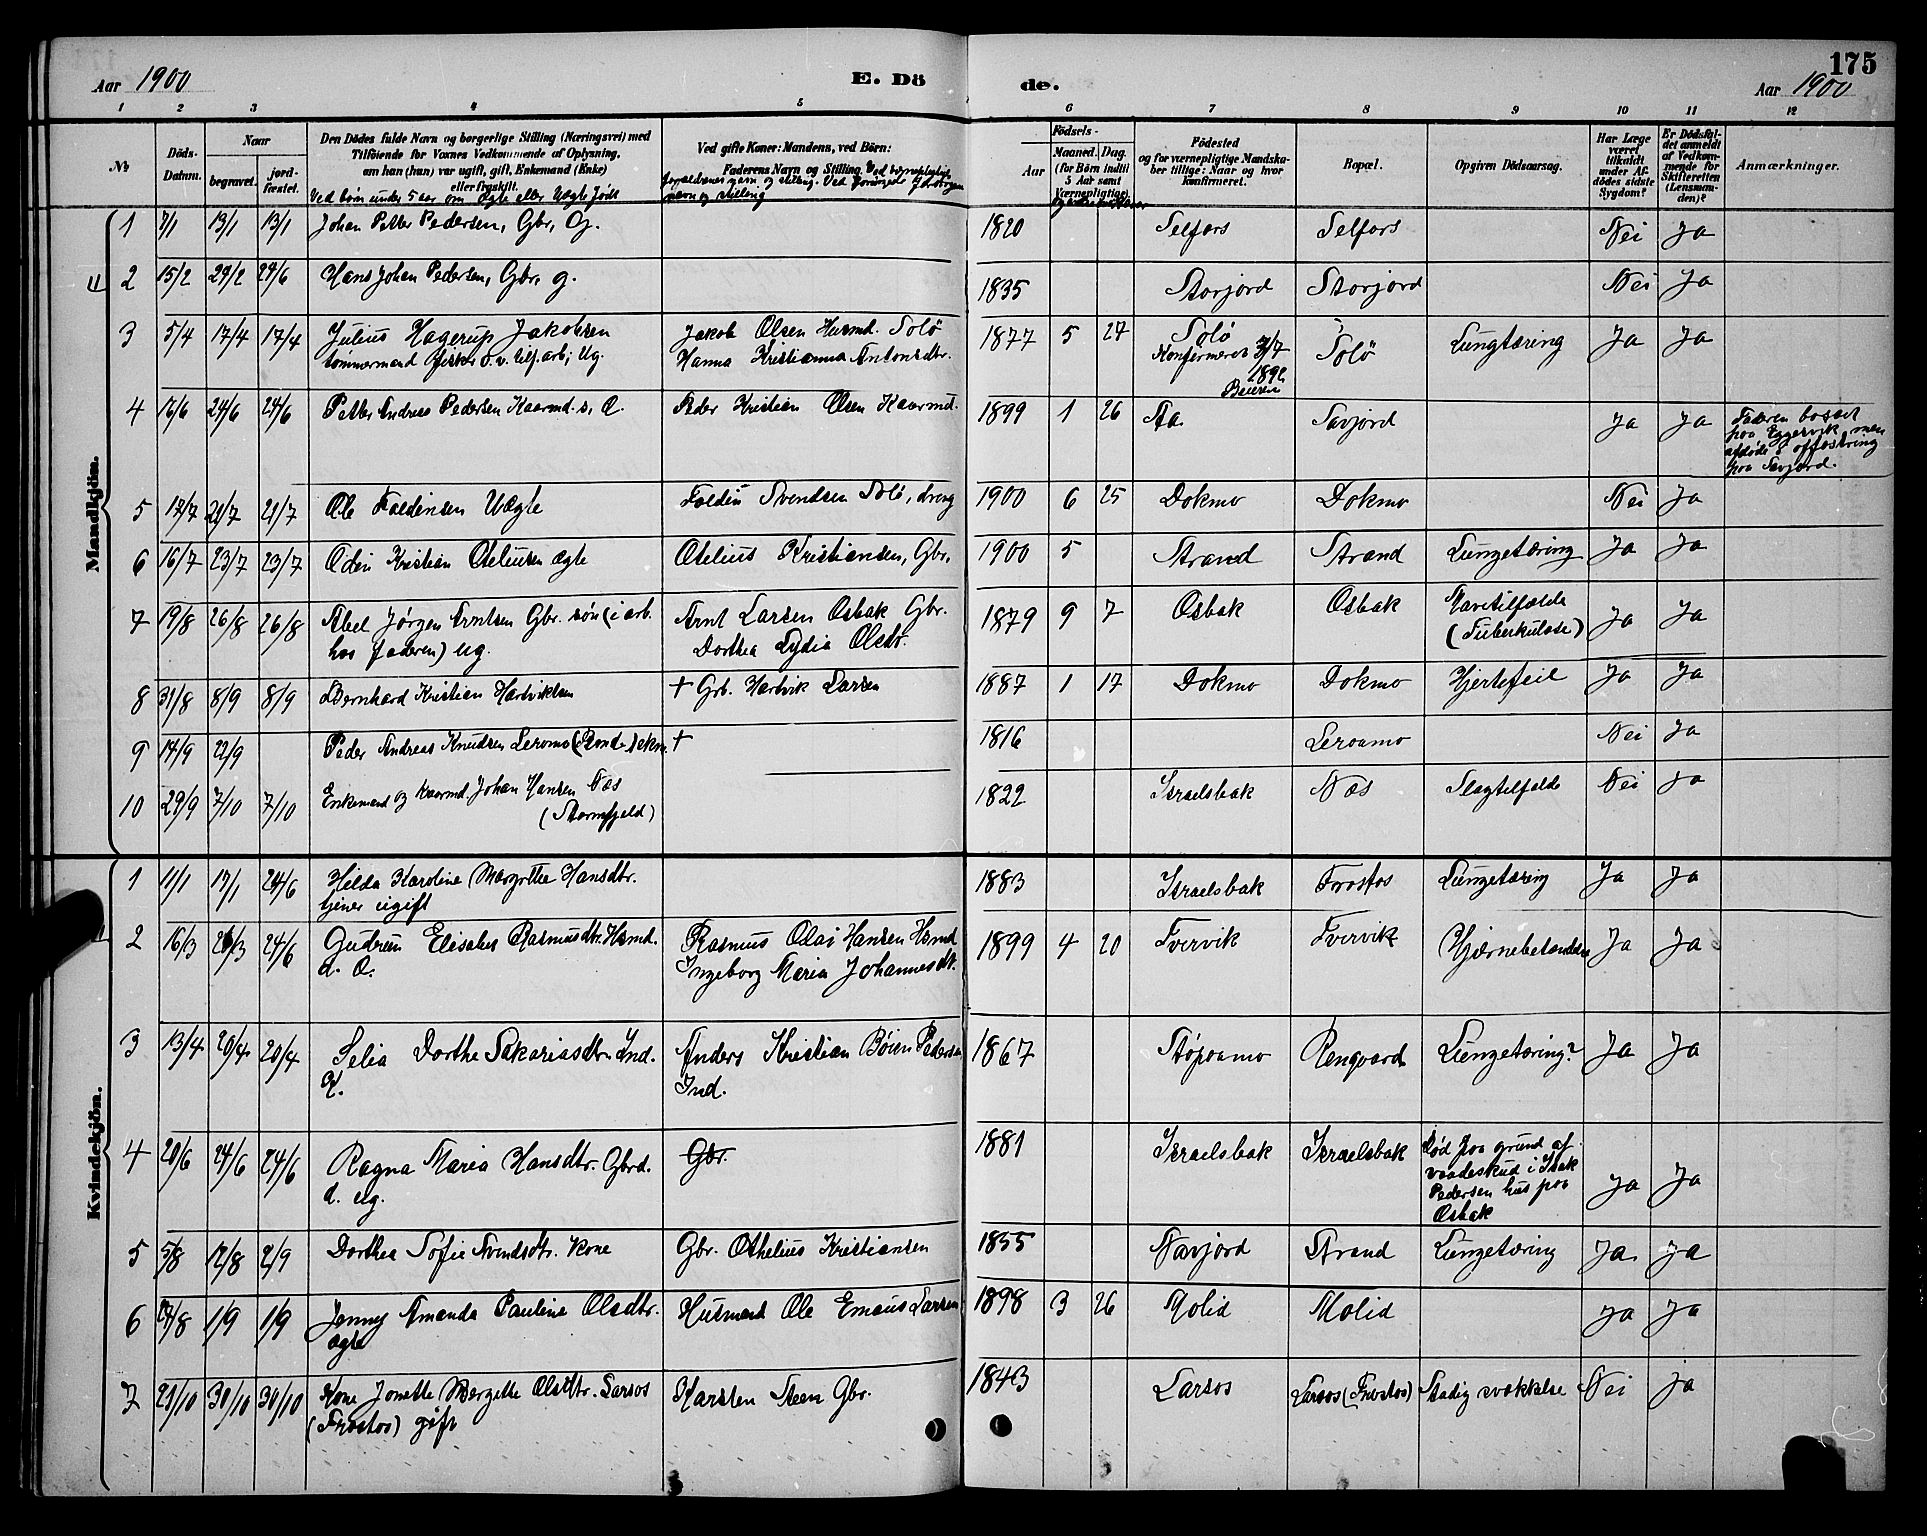 175
Aar 1900
E. Dö
de.
Aar 1900
1 2 3 4 5 6 7 8 9 10 11 12
№
Döds-Datum.
Naar
begravet.
jord-fæstet.
Den Dödes fulde Navn og borgerlige Stilling (Næringsvei) med
Tilföiende for Voxnes Vedkommende af Oplysning,
om han (hun) var ugift, gift, Enkemand (Enke)
eller fraskilt.
Ved börn under 5 aar om Ægte eller Uægte född
Ved gifte Koner: Mandens, ved Börn:
Faderens Navn og Stilling.
navn og stilling
Födsels-
Aar
Maaned. Dag.
(for Börn indtil
5 Aar samt
Værnepligtige)
Födested
og for værnepligtige Mandska-
ber tillige: Naar og hvor
konfirmeret.
Bopæl.
Opgiven Dödsaarsag.
Har Læge
været
tilkaldt
under Af-
dödes sidste
Sygdom?
Er Dödsfal-
det anmeldt
af Vedkom-
mende for
Skifteretten
(Lensman-
den)?
Anmærkninger.
Mandkjön.
1 7/1 13/1 13/1 Johan Petter Pedersen, Gbr, G. 1820 Selfors Selfors Nei Ja
2 15/2 29/2 24/6 Hans Johan Pedersen, Gbr, g. 1835 Storjord Storjord Nei Ja
3 5/4 17/4 17/4 Julius Hagerup Jakobsen Jakob Olsen Husmd. Solö 1877 5 27 Solö Solö Lungtæring Ja Ja
tömmermand fisker o.v. arb; Ug. Hanna Kristianna Antonsdtr. Konfirmeret 3/7
1892
Beieren
4 16/6 24/6 24/6 Petter Andreas Pedersen Kaarmd. s, Æ. Peder Kristian Olsen Kaarmd. 1899 1 26 Aa Savjord Ja Ja Faderen bosat
paa Eggesvik men
afdöde i opfostring
paa Savjord.
5 17/7 21/7 21/7 Ole Foldinsen Uægte Foldin Svendsen Solö, dreng 1900 6 25 Dokmo Dokmo Nei Ja
6 16/7 23/7 23/7 Odin Kristian Oteliusen ægte Otelius Kristiansen, Gbr, 1900 5 Strand Strand Lungetæring Ja Ja
7 19/8 26/8 26/8 Abel Jørgen Arntsen Gbr. søn (i arb. Arnt Larsen Osbak Gbr. 1879 9 7 Osbak Osbak Ja Ja
hos faderen) ug. Dorthea Lydia Olsdtr. (Tuberkulose)
8 31/8 8/9 8/9 Bernhard Kristian Hartviksen + Gbr. Hartvik Larsen 1887 1 17 Dokmo Dokmo Hjertefeil Ja Ja
9 14/9 22/9 Peder Andreas Knudsen Leromo + 1816 Leroamo Nei Ja
10 29/9 7/10 7/10 Enkemand og Kaarmd Johan Hansen Næs 1822 Israelsbak Næs Slagtilfelde Nei Ja
(Stormfjeld)
Kvindekjön.
1 11/1 17/1 24/6 Hilda Karoline Margrethe Hansdtr. 1883 Israelsbak Frostos Lungetæring Ja Ja
tjener ugift
2 16/3 26/3 24/6 Gudrun Elisabet Rasmusdtr. Hsmd. Rasmus Olai Hansen Hsmd 1899 4 20 Tvervik Tvervik Hjernebetændelse Ja Ja
d. Æ. Ingeborg Maria Johannesdtr.
3 13/4 20/4 20/4 Selia Dorthe Sakariasdtr. Ind. Anders Kristian Böien Pedersen 1867 Støpoamo Rengaard Lungetæring? Ja Ja
K. Ind.
4 20/6 24/6 24/6 Ragna Maria Hansdtr. Gbrd. Gbr. 1881 Israelsbak Israelsbak Död paa grund af
d. ug. vaadeskud i Isak
Pedersen hus paa
Osbak Ja Ja
5 5/8 12/8 2/9 Dorthea Sofie Svendsdtr. Kone Gbr. Othelius Kristiansen 1855 Navjord Strand Lungetæring Ja Ja
6 27/8 1/9 1/9 Jenny Amanda Pauline Olsdtr. Husmand Ole Emaus Larsen 1898 3 26 Molid Molid Ja Ja
ægte
7 21/10 30/10 30/10 Kone Jonette Margrethe Olsdtr. Larsos Karsten Steen Gbr. 1843 Larsos Larsos (Frostos) Stadig svækkelse Nei Ja
(Frostos) gift